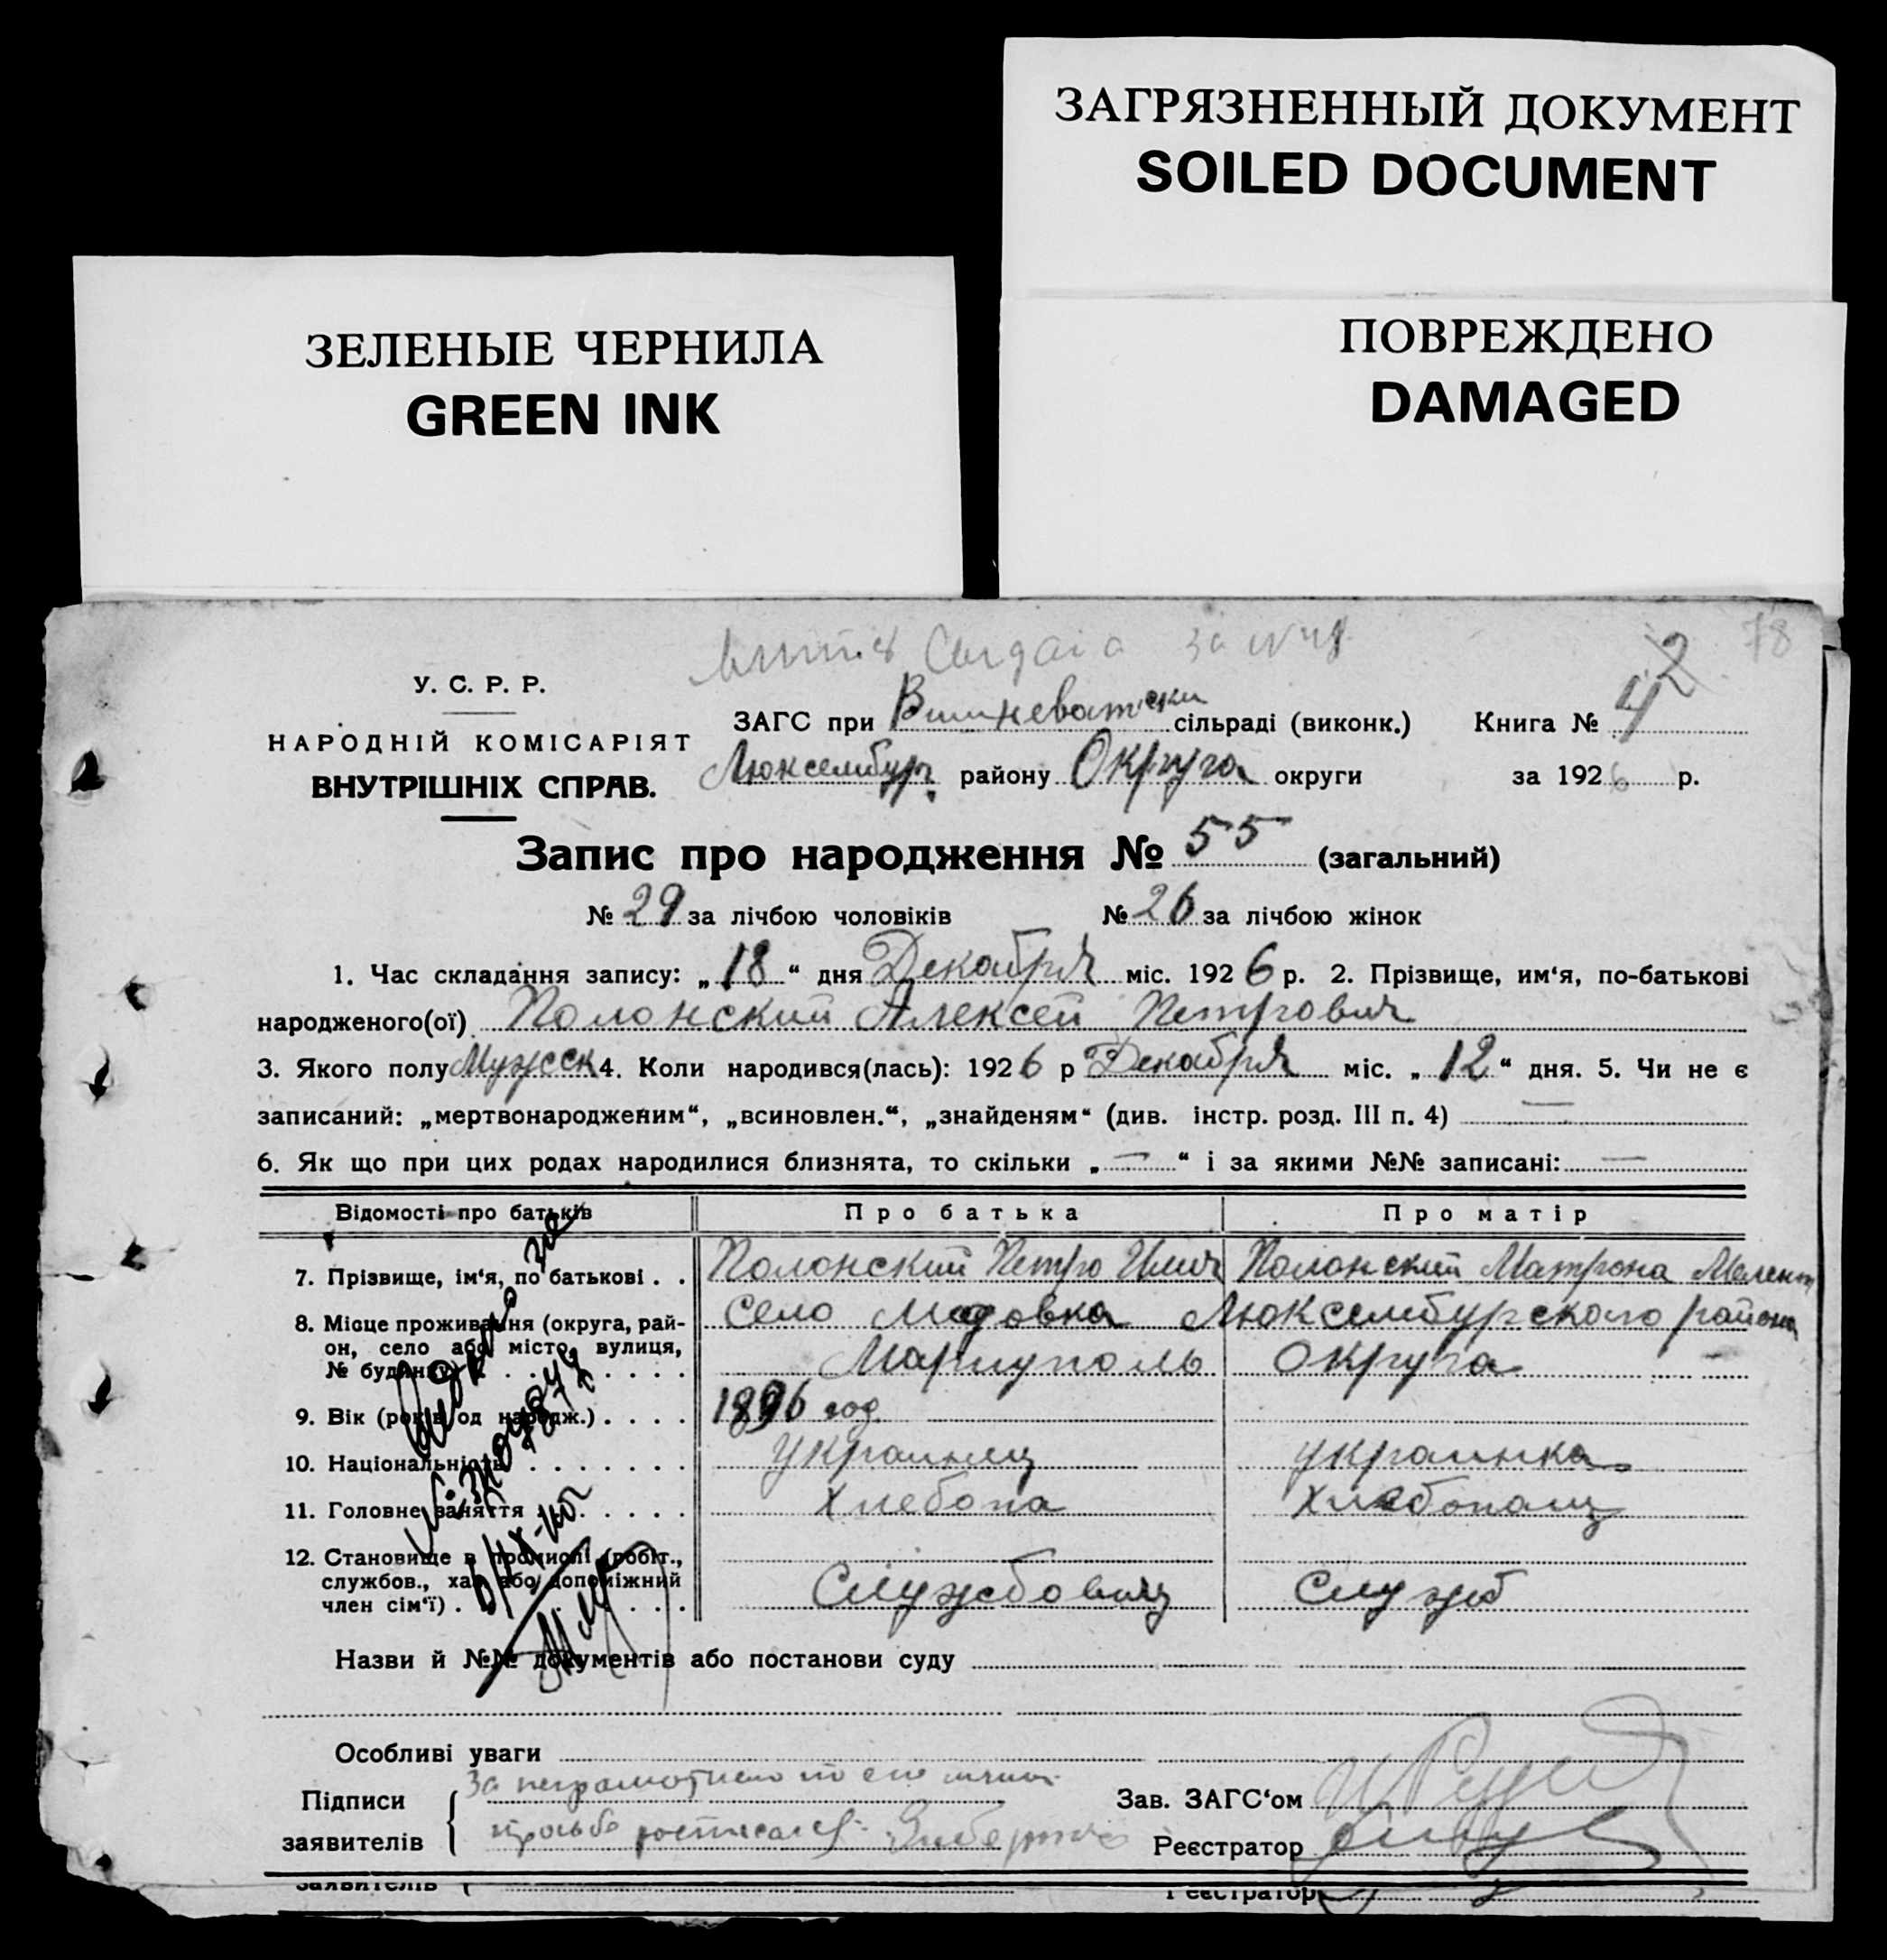 ЗАГРЯЗНЕННЫЙ ДОКУМЕНТ
SOILED DOCUMENT
ЗЕЛЕНЫЕ ЧЕРНИЛА
GREEN INK
ПОВРЕЖДЕНО
DAMAGED
78
за №
2
У. С. Р. Р.
НАРОДНІЙ КОМІСАРІЯТ
ВНУТРІШНІХ СПРАВ.
ЗАГС при Вишневатски сільраді (виконк.) Книга № 4
Люксембург району Округа округи за 1926 р.
Запис про народження № 55 (загальний)
№ 29 за лічбою чоловіків № 26 за лічбою жінок
1. Час складання запису: „18“ дня Декабря міс. 1926 р. 2. Прізвище, им‘я, по-батькові
народженого(ої) Полонский Алексей Петрович
3. Якого полу Мужеск 4. Коли народився(лась): 1926 р Декабря міс. „12“ дня. 5. Чи не є
записаний: „мертвонародженим“, „всиновлен.“, „знайденям“ (див. інстр. розд. III п. 4) —
6. Як що при цих родах народилися близнята, то скільки „—“ і за якими №№ записані: —
Відомості про батьків Про батька Про матір
7. Прізвище, ім‘я, по батькові . . Полонский Петро Илич Полонский Матрона Мелент
8. Місце проживання (округа, рай-
он, село або місто, вулиця,
№ будинку) . . . . Село Люксембургского района
Мариуполь Округа
9. Вік (років од народж.) . . . . 1896 год
10. Національність . . . . . . . украинец украинка
11. Головне заняття . . . . . Хлебопа Хлебопащ
12. Становище в промислі (робіт.,
службов., хаз. або допоміжний
член сім‘ї) . . . . . Службовищ Служб
Назви й №№ документів або постанови суду
Особливі уваги
За неграмотного по его
Підписи
заявителів
просьбе росписался
Зав. ЗАГС‘ом
Реєстратор
заявителів
Реєстратор